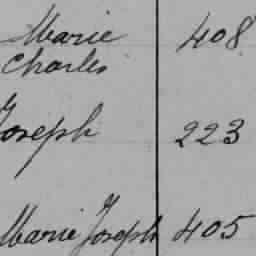 Marie 408
Charles
Joseph 223
Marie Joseph 405